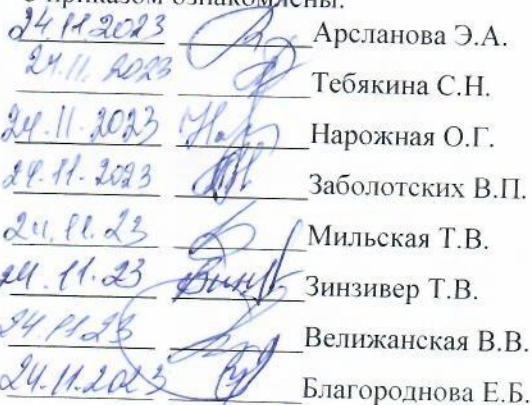 С приказом ознакомлены:
24.11.2023 Арсланова Э.А.
24.11.2023 Тебякина С.Н.
24.11.2023 Нарожная О.Г.
24.11.2023 Заболотских В.П.
24.11.23 Мильская Т.В.
24.11.23 Зинзивер Т.В.
24.11.23 Велижанская В.В.
24.11.2023 Благороднова Е.Б.